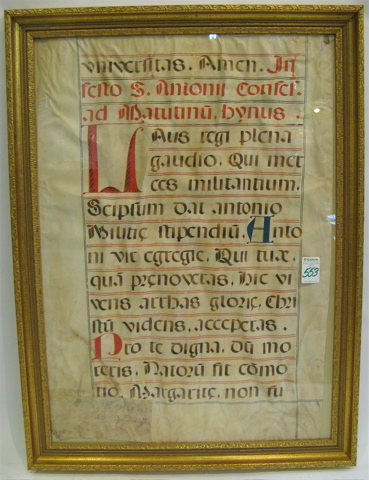 universitas. Amen. In
festo S. Antonii Confes.
ad Matutinū, hynus.
Laus regi plena
gaudio. Qui mer
ces militantium.
Seipsum dat antonio
Militię stipendiū. Anto
ni vir egregie, Qui tuæ,
quā prenoveras, hic vi
vens arrhas glorię, Chri
stū videns, acceperas.
Pro te digna, dū mo
reris, Natorū fit cōmo
tio. Margaritę, non su
553